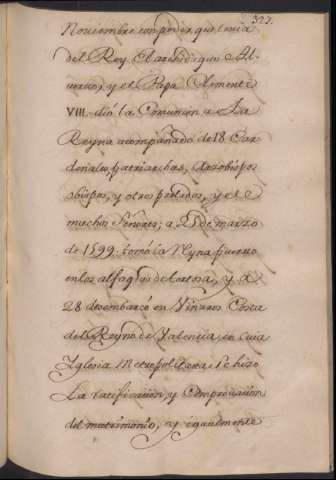 322.
Noviembre con poder que tenia
del Rey El archiduque Al-
verto, y el Papa Clemente
VIII. dió la Comunion a La
Reyna acompañado de 18 Car-
denales, patriarchas, Arzobispos
obispos, y otros prelados, y de
muchos Señores; a 21 de marzo
de 1599. tomó la Reyna puerto
en los alfaques de tortosa, y a
28 desembarcó en Vinaros Costa
del Reyno de Valencia, en cuia
Iglesia Metropolitana se hizo
La ratificacion, y Comprovacion
del matrimonio, y egualmente